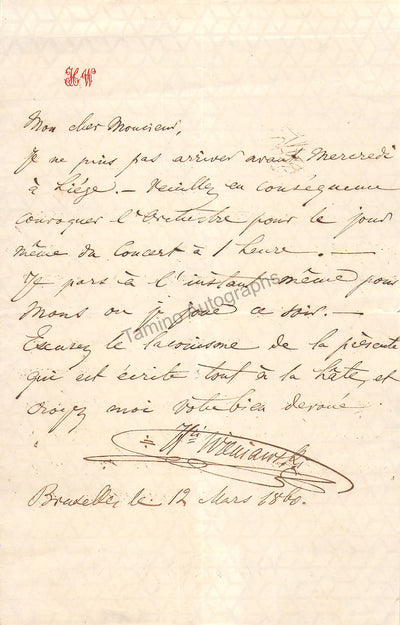 H W
Mon cher Monsieur,
Je ne puis pas arriver avant Mercredi
à Liége. – Veuillez en conséquence
convoquer l'Orchestre pour le jour
même du Concert à 1 heure. —
Je pars à l'instant même pour
Mons où je joue ce soir. —
Excusez le laconisme de la présente
qui est écrite tout à la hâte, et
croyez moi votre bien dévoué
Hri Wieniawski
Bruxelles le 12 Mars 186
Tamino Autographs